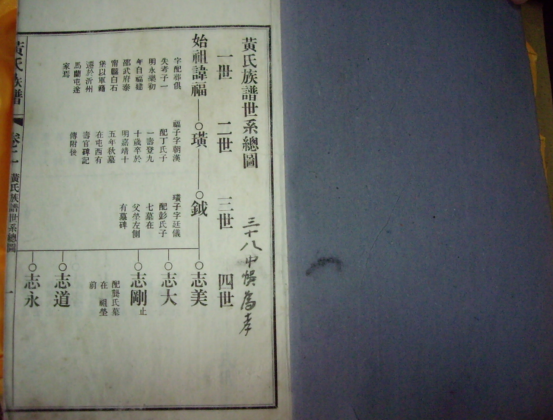 黃氏族譜世系總圖
一世
二世
三世
四世
始祖諱福
字配葬俱
失考子一
明永樂初
年自福建
邵武府泰
寧縣白石
堡以軍籍
遷於沂州
馬蘭屯遂
家焉
璜
福子字朝漢
配丁氏子
一壽登九
十歲卒於
明嘉靖十
五年秋墓
在屯西有
壽官碑記
傳附後
鉞
璜子字廷儀
配彭氏子
七墓在
父塋左側
有墓碑
志美
志大
志剛止
配龔氏墓
在祖塋
前
志道
志永
黃氏族譜
卷之一
黃氏族譜世系總圖
一
三十八